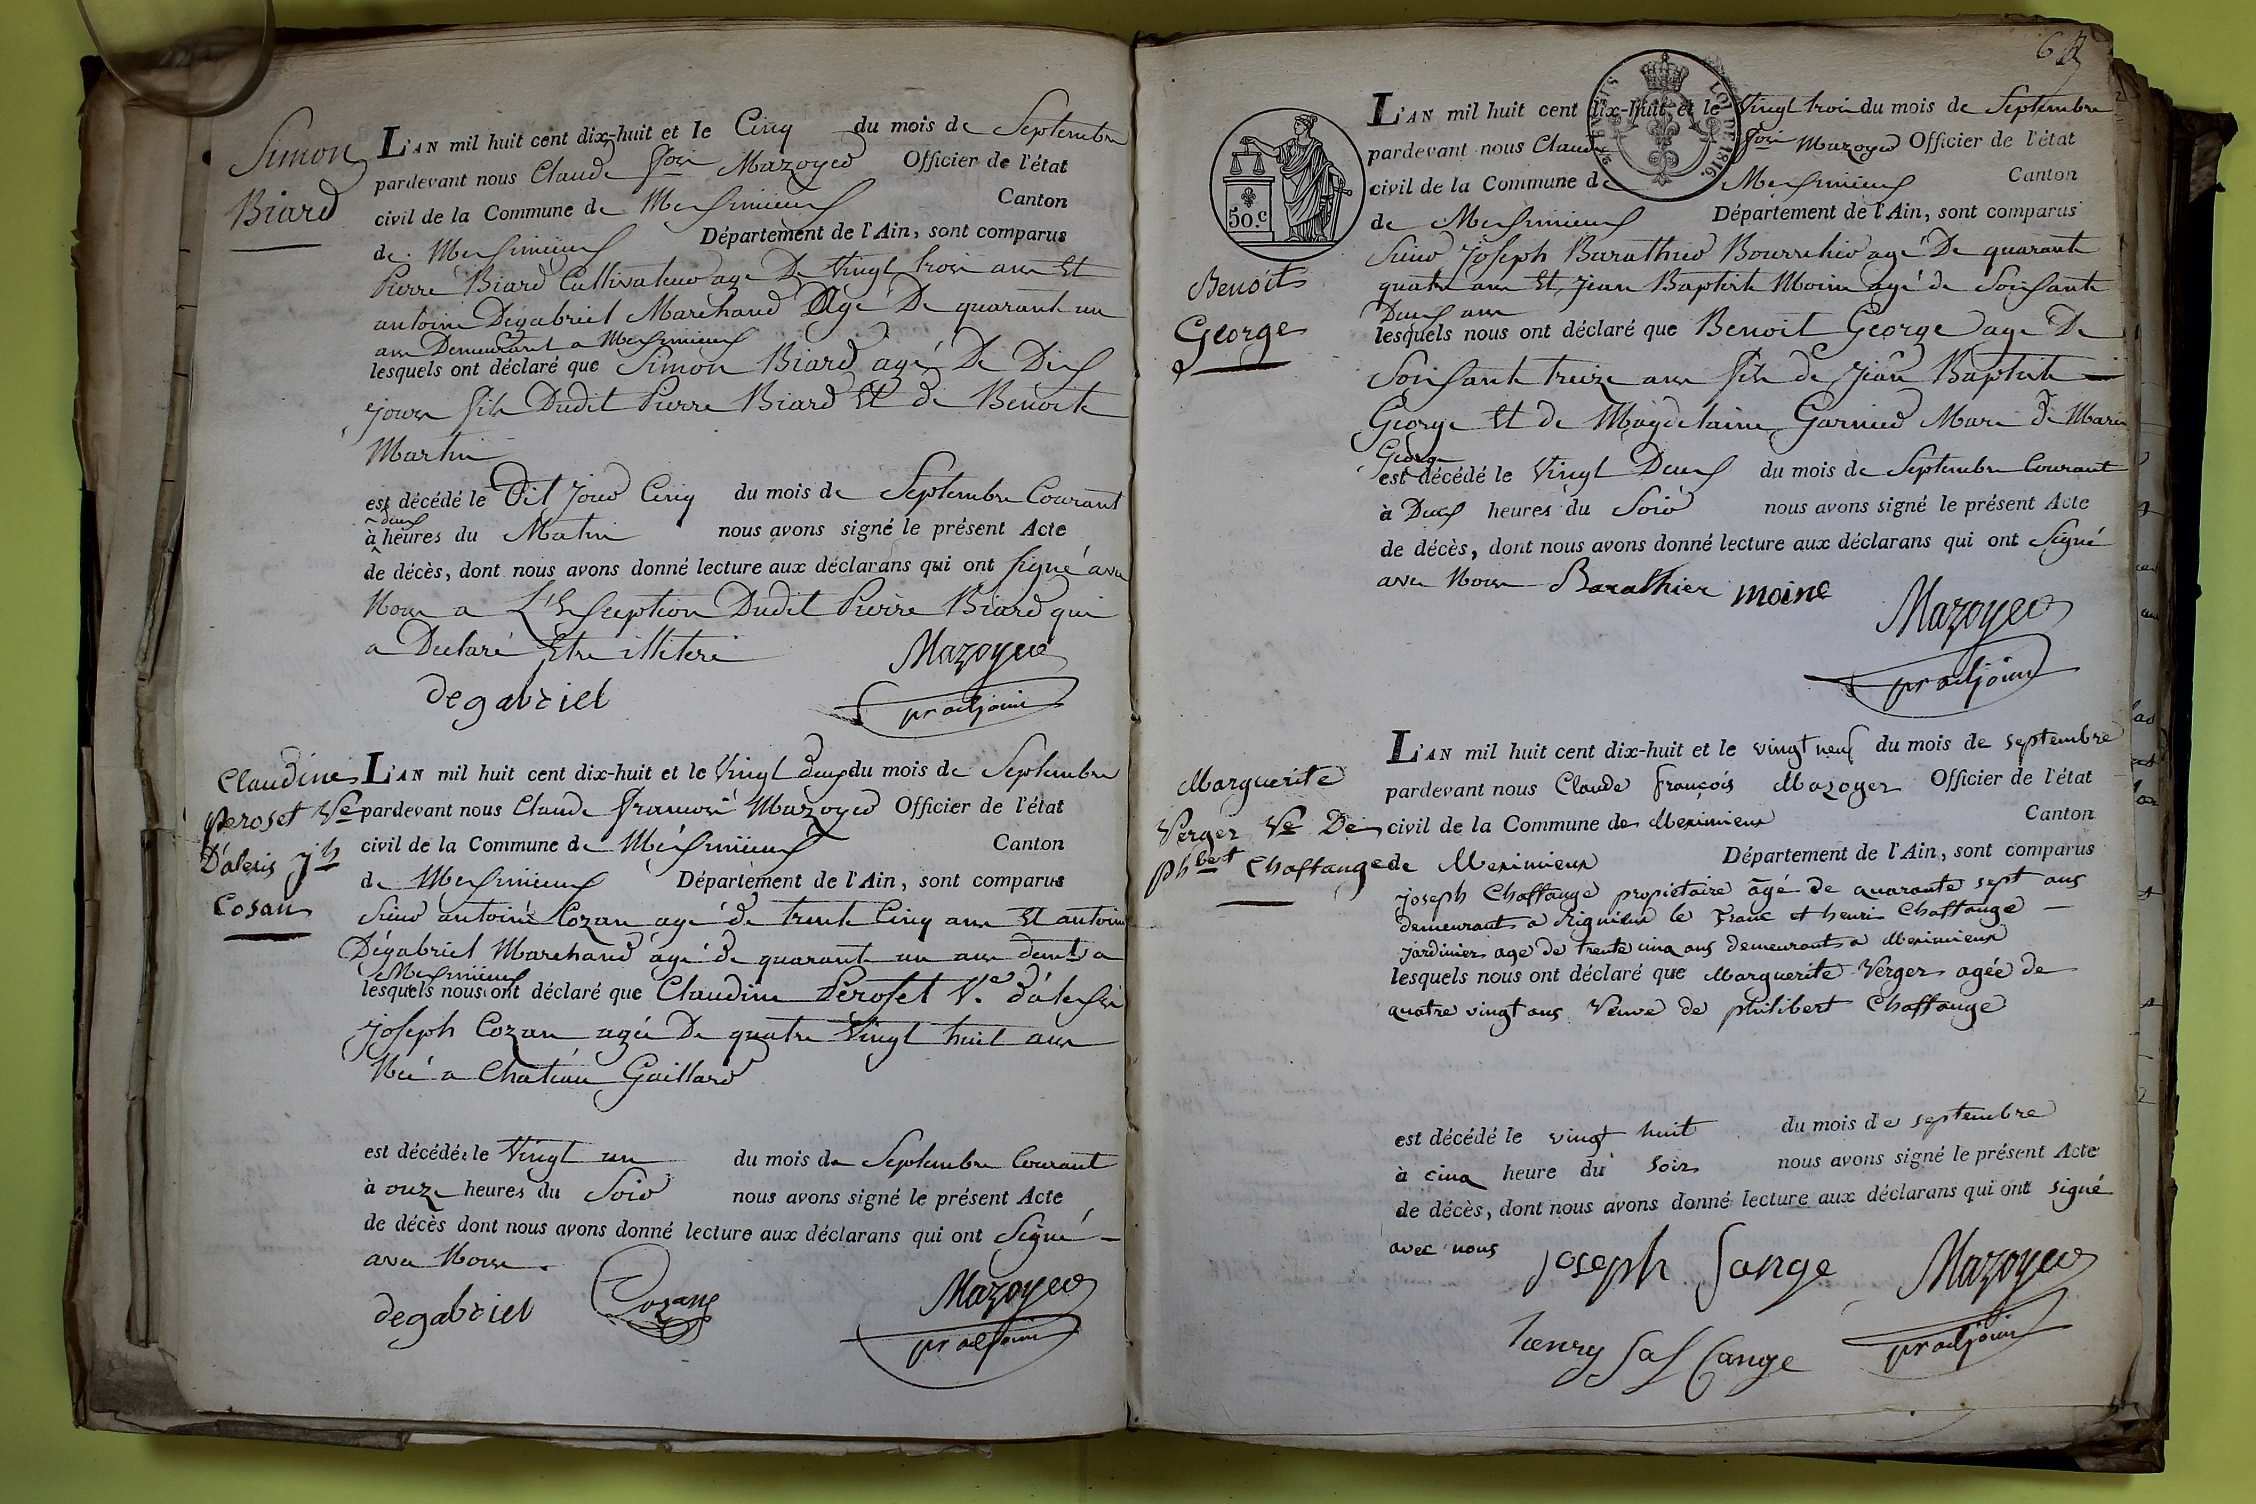 Simon
Biard
L'AN mil huit cent dix-huit et le Cinq du mois de Septembre
pardevant nous Claude fois Mazoyer Officier de l'état
civil de la Commune de Meximieux Canton
de Meximieux Département de l'Ain, sont comparus
Pierre Biard Cultivateur age De Vingt trois ans Et
antoine Degabriel Marchand Agé De quarante un
ans Demeurant a Meximieux
lesquels ont déclaré que Simon Biard agé De Dix
jours fils Dudit Pierre Biard Et de Benoite
Martin
est décédé le Dit jour Cinq du mois de Septembre Courant
deux
à heures du Matin nous avons signé le présent Acte
de décès, dont nous avons donné lecture aux déclarans qui ont signé avec
Nous a L'Exception Dudit Pierre Biard qui
a Declaré Etre illiteré Mazoyer
degabriel pr adjoint
Claudine
Peroset Ve
D'alexis jh
Cosan
L'AN mil huit cent dix-huit et le Vingt deux du mois de Septembre
pardevant nous Claude françois Mazoyer Officier de l'état
civil de la Commune de Méximieux Canton
de Meximieux Département de l'Ain, sont comparus
Sieur antoine Cozan agé de trente Cinq ans Et antoine
Dégabriel Marchand agé de quarante un ans demts a
Meximieux
lesquels nous ont déclaré que Claudine Peroset Ve d'alexis
Joseph Cozan agée De quatre Vingt huit ans
Née a Chateau Gaillard
est décédée le Vingt un du mois de Septembre Courant
à onze heures du Soir nous avons signé le présent Acte
de décès dont nous avons donné lecture aux déclarans qui ont Signé
avec Nous.
degabriel Cozane Mazoyer
pr adjoint
50.c
LOI DE 1816.
Benoit
George
L'AN mil huit cent dix-huit et le Vingt trois du mois de Septembre
pardevant nous Claude fois Mazoyer Officier de l'état
civil de la Commune de Meximieux Canton
de Meximieux Département de l'Ain, sont comparus
Sieur Joseph Barathier Bourrelier agé De quarante
quatre ans Et Jean Baptiste Moine agé de Soixante
Deux ans
lesquels nous ont déclaré que Benoit George age De
Soixante treize ans fils de Jean Baptiste
George Et de Magdelaine Garnier Mari de Marie
George
est décédé le Vingt Deux du mois de Septembre Courant
à Deux heures du Soir nous avons signé le présent Acte
de décès, dont nous avons donné lecture aux déclarans qui ont Signé
avec Nous Barathier moine
Mazoyer
pr adjoint
Marguerite
Verger Ve De
Phbert Chaffange
L'AN mil huit cent dix-huit et le vingt neuf du mois de septembre
pardevant nous Claude françois Mazoyer Officier de l'état
civil de la Commune de Meximieux Canton
de Meximieux Département de l'Ain, sont comparus
joseph Chaffange propietaire âgé de quarante sept ans
demeurant a Rignieux le Franc et henri Chaffange
jardinier age de trente cinq ans demeurants a Meximieux
lesquels nous ont déclaré que Marguerite Verger agée de
quatre vingt ans Veuve de philibert Chaffange
est décédé le vingt huit du mois de septembre
à cinq heure du soir nous avons signé le présent Acte
de décès, dont nous avons donné lecture aux déclarans qui ont signé
avec nous joseph Sange Mazoyer
henry Saf Cange pr adjoint